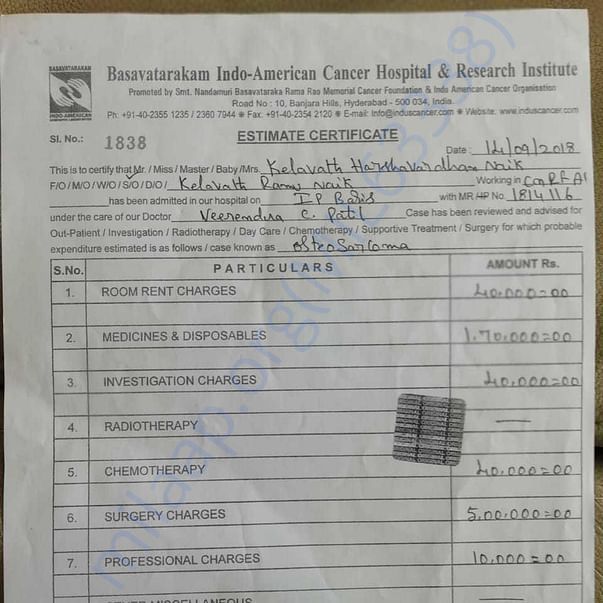 BASAVATARAKAM
INDO-AMERICAN
Basavatarakam Indo-American Cancer Hospital & Research Institute
Promoted by Smt. Nandamuri Basavataraka Rama Rao Memorial Cancer Foundation & Indo American Cancer Organisation
Road No : 10, Banjara Hills, Hyderabad - 500 034, India.
Ph: +91-40-2355 1235 / 2360 7944 Fax: +91-40-2354 2120 E-mail: Info@induscancer.com Website: www.induscancer.com
Sl. No.: 1838
ESTIMATE CERTIFICATE
Date: 14/09/2018
This is to certify that Mr. / Miss / Master / Baby /Mrs. Kelavath Harshavardhan Naik
F/O / M/O / W/O / S/O / D/O / Kelavath Ramu Naik Working in
has been admitted in our hospital on IP Basis with MR No. 1814116
under the care of our Doctor Veerendra C. Patil Case has been reviewed and advised for
Out-Patient / Investigation / Radiotherapy / Day Care / Chemotherapy / Supportive Treatment / Surgery for which probable
expenditure estimated is as follows / case known as Osteosarcoma
S.No. PARTICULARS AMOUNT Rs.
1. ROOM RENT CHARGES 40,000=00
2. MEDICINES & DISPOSABLES 1,70,000=00
3. INVESTIGATION CHARGES 40,000=00
4. RADIOTHERAPY —
5. CHEMOTHERAPY 40,000=00
6. SURGERY CHARGES 5,00,000=00
7. PROFESSIONAL CHARGES 10,000=00
OTHER MISCELLANEOUS